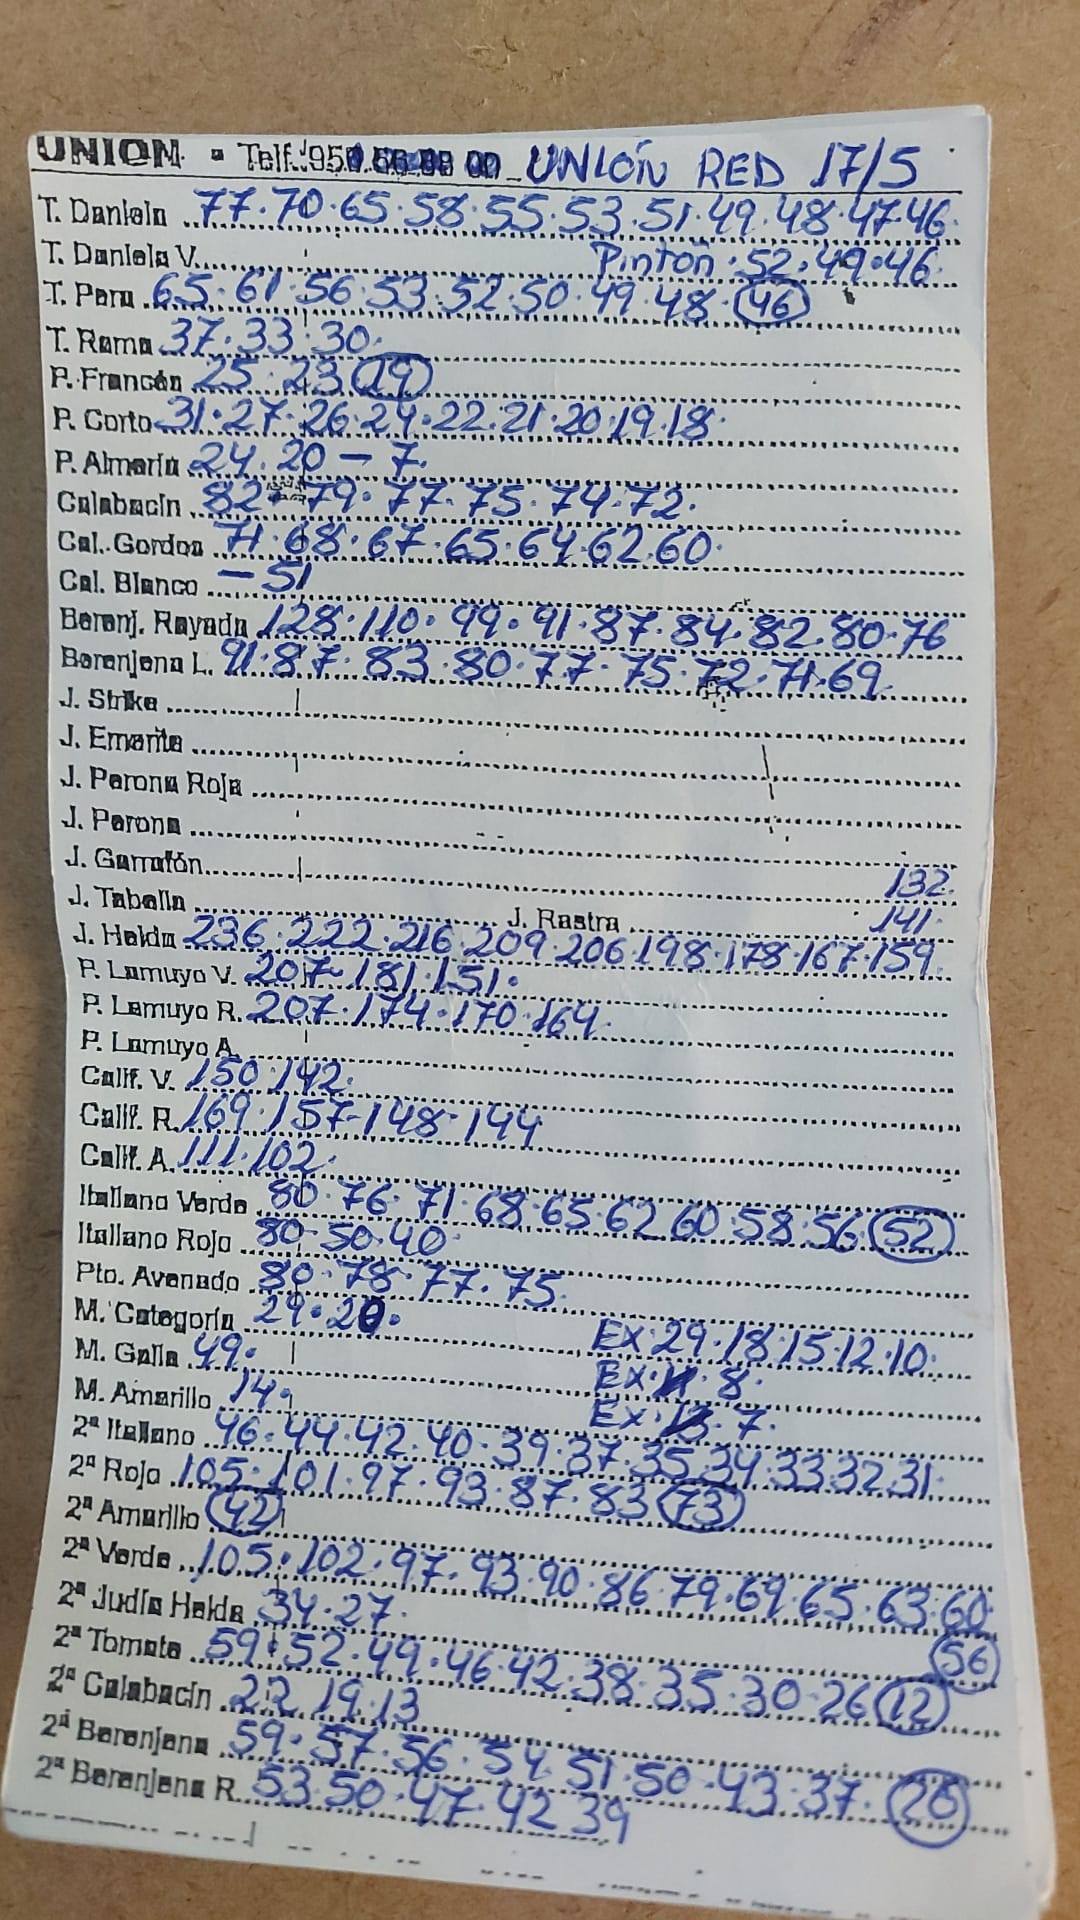 UNION - Telf. 950 UNIÓN RED 17/5
T. Daniela 77.70.65.58.55.53.51.49.48.47.46.
T. Daniela V. Pintoñ.52.49.46.
T. Pera 65.61.56.53.52.50.49.48.46
T. Rama 37.33.30.
P. Francés 25.23 19
P. Corto 31.27.26.24.22.21.20.19.18.
P. Almería 24.20-7.
Calabacín 82.79.77.75.74.72.
Cal. Gordos 71.68.67.65.64.62.60.
Cal. Blanco -51
Beranj. Rayada 128.110.99.91.87.84.82.80.76
Beranjena L. 91.87.83.80.77.75.72.71.69.
J. Strike
J. Emerite
J. Perona Roja
J. Perona
J. Garrafón 132.
J. Tabella J. Rastra 141.
J. Helda 236.222.216.209.206.198.178.167.159.
P. Lamuyo V. 207-181.151.
P. Lamuyo R. 207.174.170.164.
P. Lamuyo A.
Calif. V. 150.142.
Calif. R. 169.157-148-144
Calif. A. 111.102.
Italiano Verde 80.76.71.68.65.62.60.58.56 52
Italiano Rojo 80-50.40.
Pto. Asado 80.78.77.75.
M. Categoría 29.20. Ex.29.18.15.12.10.
M. Galia 49. Ex. 8.
M. Amarillo 14. Ex. 7.
2ª Italiano 46.44.42.40.39.37.35.34.33.32.31.
2ª Rojo 105.101.97.93.87.83 73
2ª Amarillo 42
2ª Verde 105.102.97.93.90.86.79.69.65.63.60.
2ª Judía Helda 34.27. 56
2ª Tomate 59.52.49.46.42.38.35.30.26 12
2ª Calabacín 22.19.13
2ª Beranjena 59.57.56.54.51.50.43.37. 26
2ª Beranjena R. 53.50.47.42.39